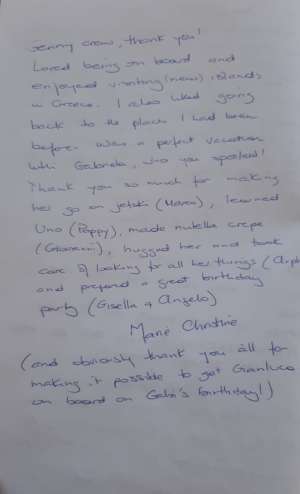 Jenny crew, thank you!
Loved being on board and
enjoyed visiting (new) islands
in Greece. I also liked going
back to the places I had been
before. Was a perfect vacation
with Gabriela, who you spoiled!
Thank you so much for making
her go on jetski (Maren), learned
Uno (Poppy), made nutella crepe
(Giovanni), hugged her and took
care of looking for all her things
and prepared a great birthday
party (Gisella + Angelo)
Marie Christine
(and obviously thank you all for
making it possible to get Gianluca
on board on Gabi's birthday!)